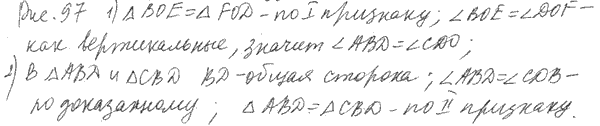 Рис. 97 1) △BOE = △FOD – по I признаку; ∠BOE = ∠DOF –
как вертикальные, значит ∠ABD = ∠CDO;
2) В △ABD и △CBD BD – общая сторона; ∠ABD = ∠CDB –
по доказанному; △ABD = △CBD – по II признаку.